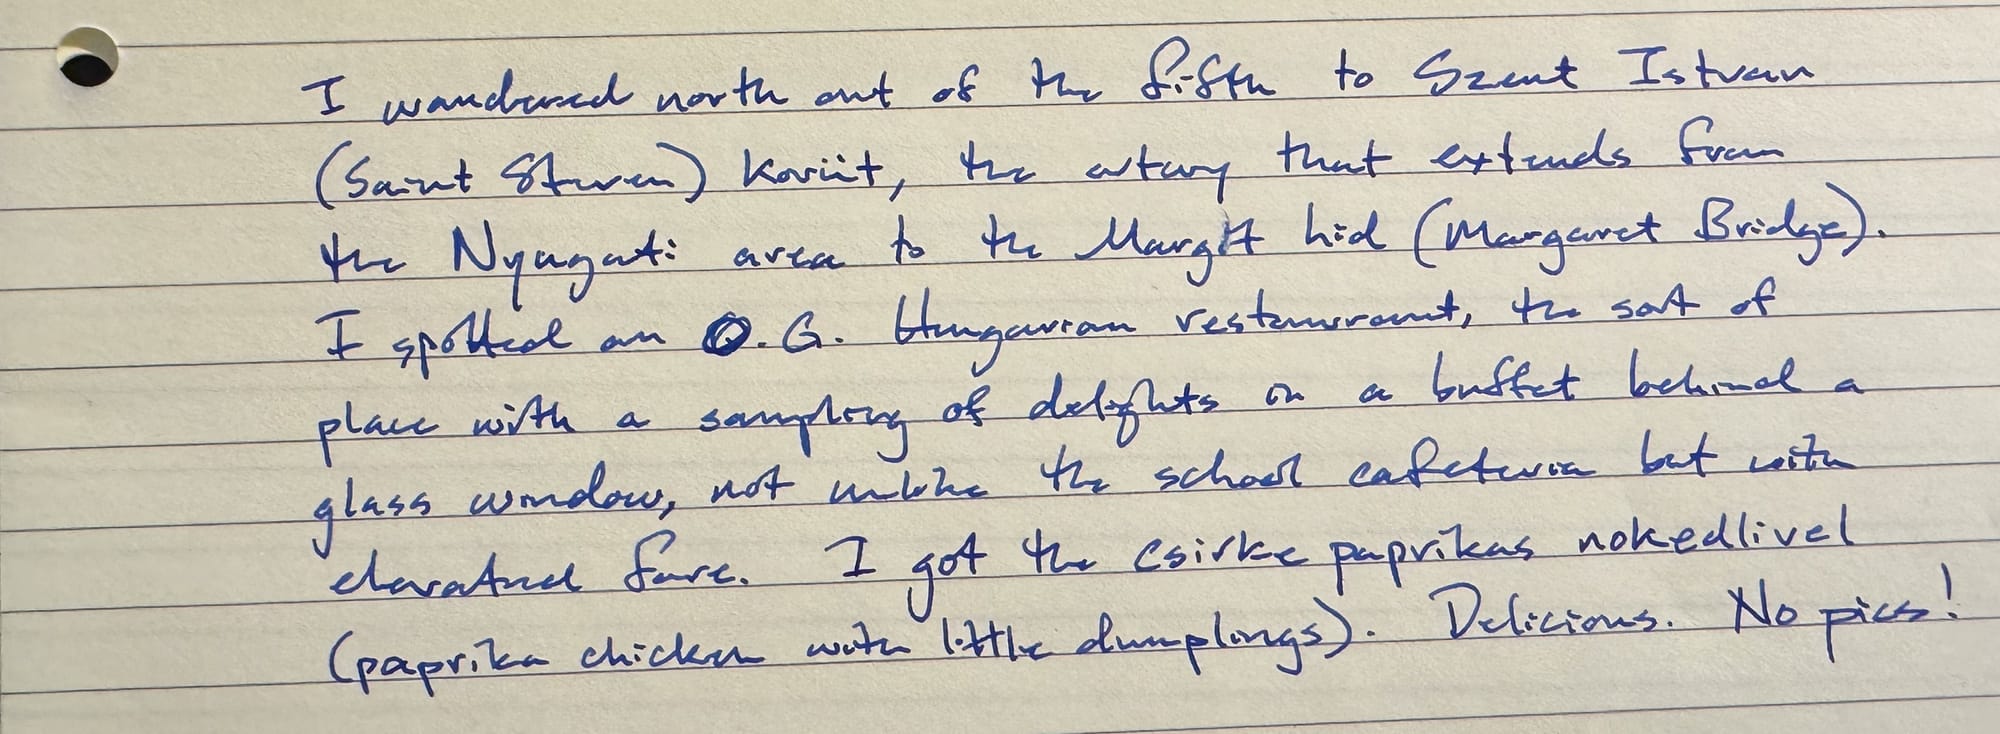 I wandered north out of the fifth to Szent Istvan
(Saint Steven) Korüt, the artery that extends from
the Nyugati area to the Margit hid (Margaret Bridge).
I spotted an O.G. Hungarian restaurant, the sort of
place with a sampling of delights on a buffet behind a
glass window, not unlike the school cafeteria but with
elevated fare. I got the csirke paprikas nokedlivel
(paprika chicken with little dumplings). Delicious. No pics!